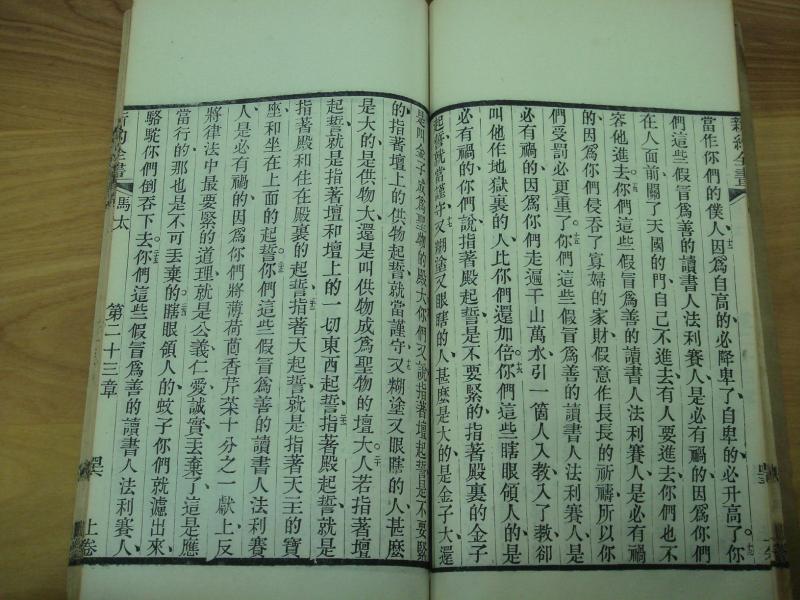 新約全書
當作你們的僕人、因爲自高的、必降卑了、自卑的、必升高了。你
們這些假冒爲善的讀書人法利賽人、是必有禍的、因爲你們
在人面前、關了天國的門、自己不進去、有人要進去、你們也不
容他進去。你們這些假冒爲善的讀書人法利賽人、是必有禍
的、因爲你們侵吞了寡婦的家財、假意作長長的祈禱、所以你
們受罰必更重了。你們這些假冒爲善的讀書人法利賽人、是
必有禍的、因爲你們走遍千山萬水、引一箇人入教、入了教、卻
叫他作地獄裏的人、比你們還加倍。你們這些瞎眼領人的、是
必有禍的、你們說、指著殿起誓、是不要緊的、指著殿裏的金子
起誓、就當謹守、又糊塗又眼瞎的人、甚麽是大的、是金子大、還
是叫金子成爲聖物的殿大、你們又說、指著壇起誓、是不要緊
的、指著壇上的供物起誓、就當謹守、又糊塗又眼瞎的人、甚麽
是大的、是供物大、還是叫供物成爲聖物的壇大。人若指著壇
起誓、就是指著壇和壇上的一切東西起誓、指著殿起誓、就是
指著殿和住在殿裏的起誓、指著天起誓、就是指著天主的寶
座、和坐在上面的起誓。你們這些假冒爲善的讀書人法利賽
人、是必有禍的、因爲你們將薄荷茴香芹菜十分之一獻上、反
將律法中最要緊的道理、就是公義、仁愛、誠實、丟棄了、這是應
當行的、那也是不可丟棄的。瞎眼領人的、蚊子你們就濾出來、
駱駝你們倒吞下去。你們這些假冒爲善的讀書人法利賽人、
新約全書 馬太 第二十三章 上卷